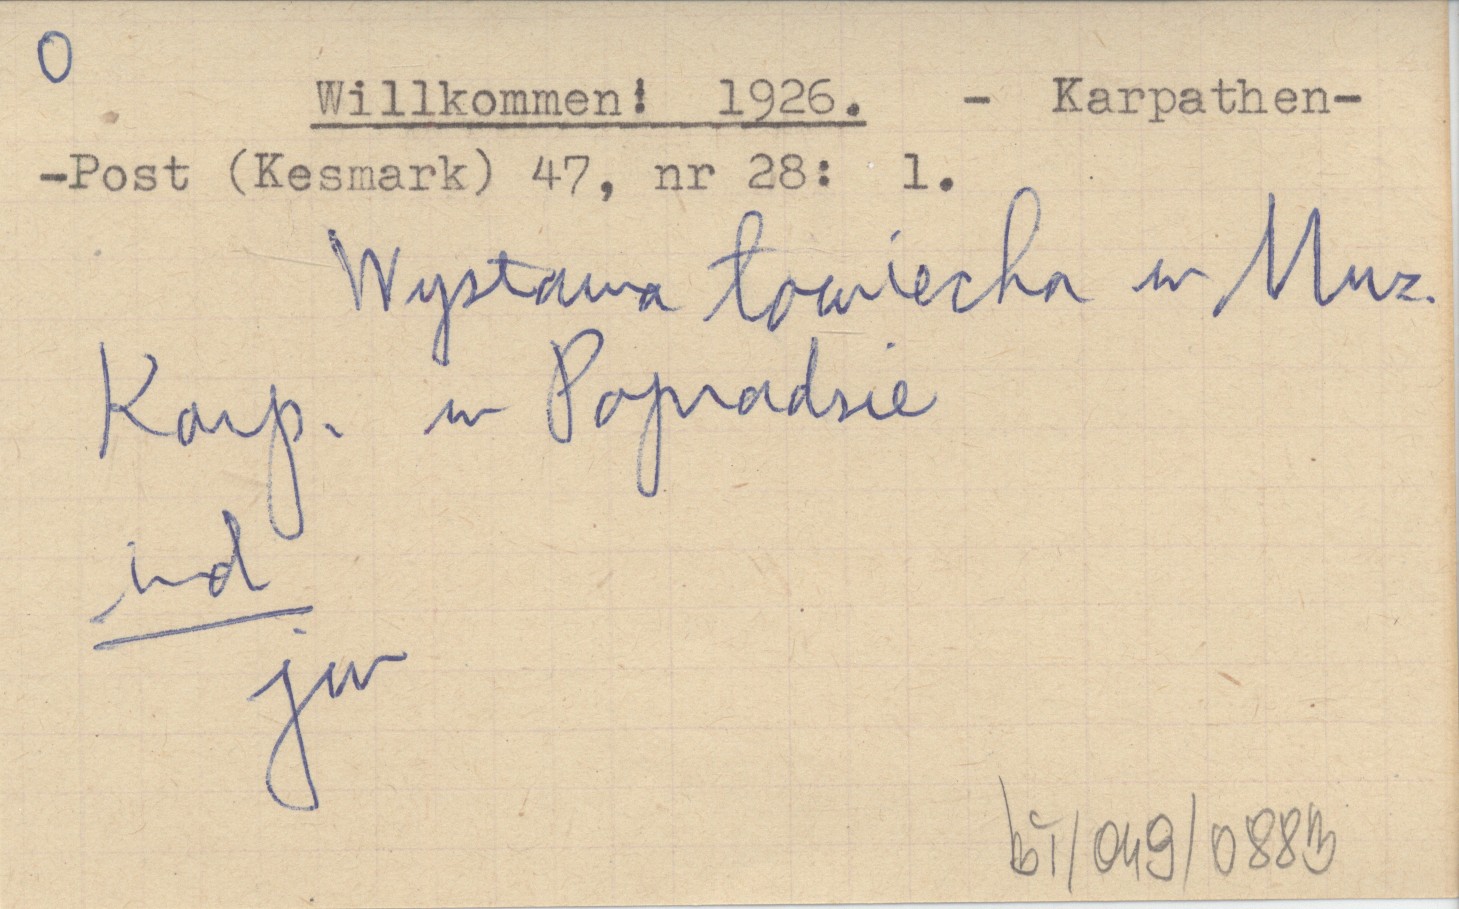 0
Willkommen! 1926. - Karpathen-
-Post (Kesmark) 47, nr 28: 1.
Wystawa łowiecka w Muz.
Karp. w Popradzie
ind
jw
bī/049/0883